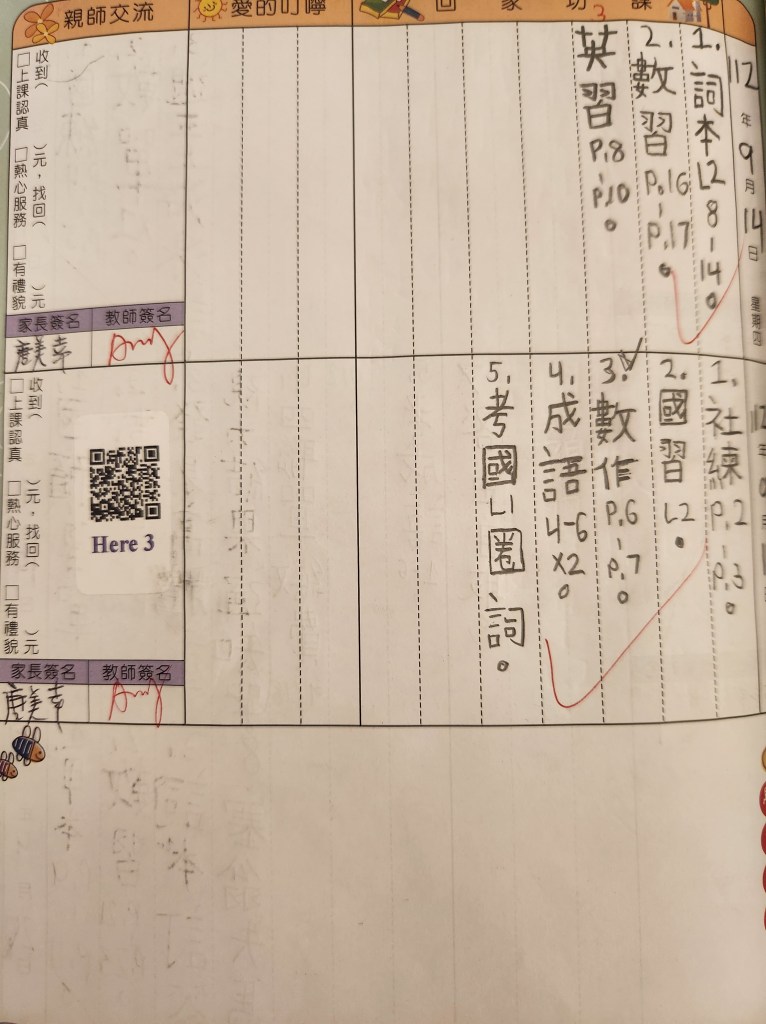 親師交流
愛的叮嚀
回家功課
112年9月14日 星期四
1.詞本L2 8-14。
2.數習P.16-P.17。
3英習P.8-P.10。
收到( )元，找回( )元
□上課認真 □熱心服務 □有禮貌
家長簽名
教師簽名
Amy
1.社練P.2-P.3。
2.國習L2。
3.數作P.6-P.7。
4.成語4-6x2。
5.考國L1圈詞。
收到( )元，找回( )元
□上課認真 □熱心服務 □有禮貌
Here 3
家長簽名
教師簽名
Amy